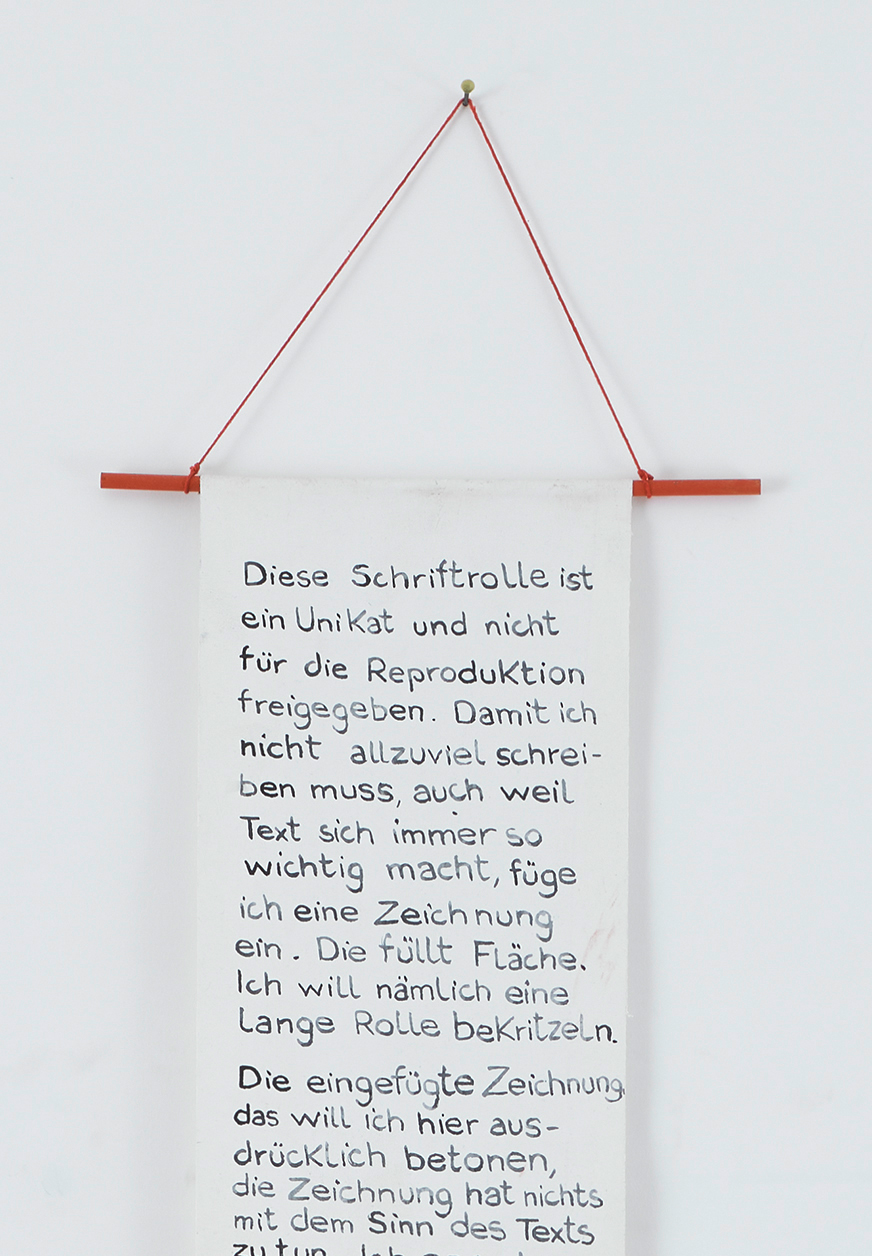 Diese Schriftrolle ist
ein Unikat und nicht
für die Reproduktion
freigegeben. Damit ich
nicht allzuviel schrei-
ben muss, auch weil
Text sich immer so
wichtig macht, füge
ich eine Zeichnung
ein. Die füllt Fläche.
Ich will nämlich eine
lange Rolle bekritzeln.
Die eingefügte Zeichnung,
das will ich hier aus-
drücklich betonen,
die Zeichnung hat nichts
mit dem Sinn des Texts
zu tun. Ich